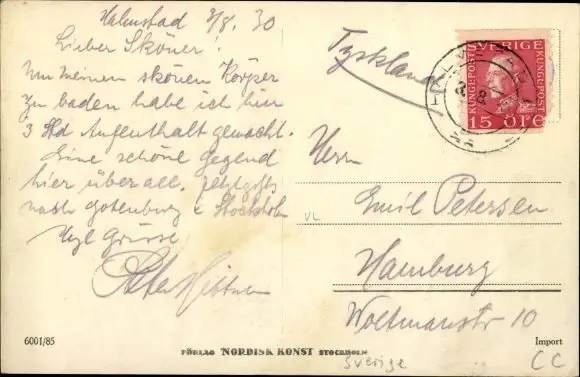 Halmstad 8/8. 30
Lieber Sköner!
Um meinen skönen Körper
zu baden habe ich hier
3 Std Aufenthalt gemacht.
Eine schöne Gegend
hier überall. Jetzt gehts
nach Gotenburg & Stockholm
Hzl Grüsse
Tyskland
SVERIGE
KUNGL·POST
KUNGL·POST
15 ÖRE
HALMSTAD
Herrn
VL
Emil Petersen
Hamburg
Woltmanstr 10
6001/85
FÖRLAG NORDISK KONST STOCKHOLM
Import
Sverige
CC